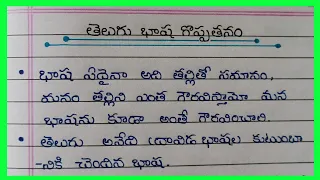 తెలుగు భాష గొప్పతనం
• భాష ఏదైనా అది తల్లితో సమానం,
మనం తల్లిని ఎంత గౌరవిస్తామో మన
భాషను కూడా అంతే గౌరవించాలి.
• తెలుగు అనేది ద్రావిడ భాషల కుటుంబా
-నికి చెందిన భాష.